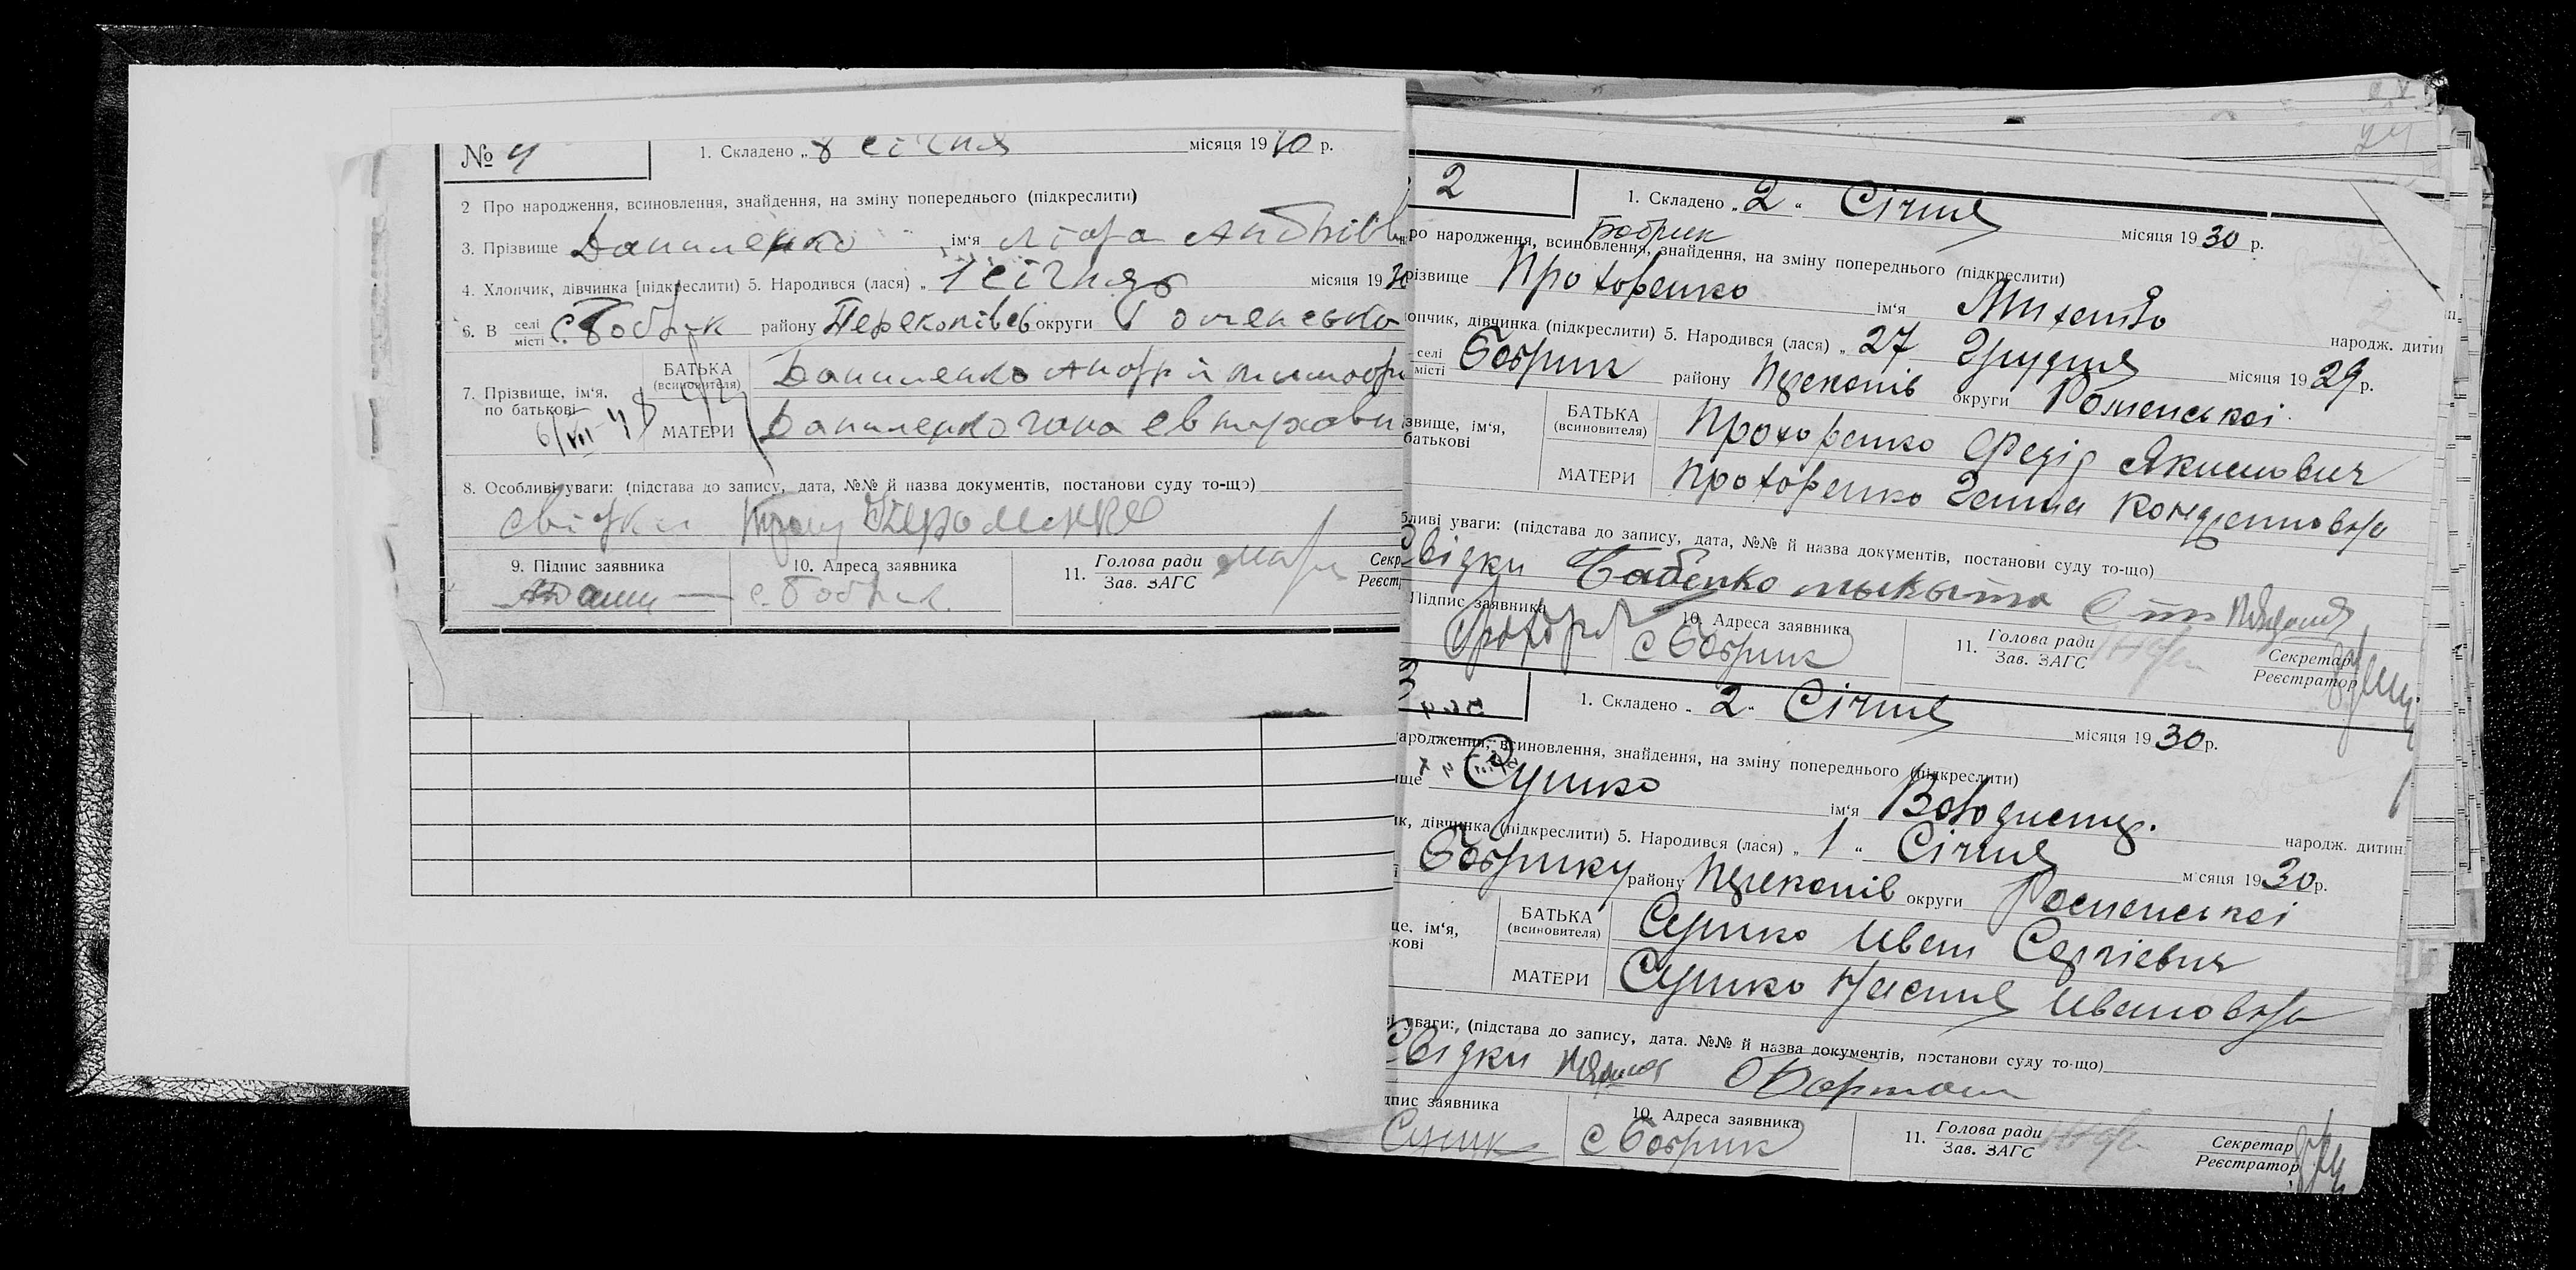 № 4
1. Складено „ 8 січня місяця 1930 р.
2 Про народження, всиновлення, знайдення, на зміну попереднього (підкреслити)
3. Прізвище Даниленко ім'я
4. Хлопчик, дівчинка [підкреслити) 5. Народився (лася) „ 1 січня місяця 1930
6. В селі місті с. Бобрик району Перекопівсь округи Роменсько
7. Прізвище, ім'я, по батькові
БАТЬКА (всиновителя) Даниленко Андрій
МАТЕРИ Даниленко
8. Особливі уваги: (підстава до запису, дата, №№ й назва документів, постанови суду то-що)
свідки
9. Підпис заявника
10. Адреса заявника
с. Бобрик
11. Голова ради
Зав. ЗАГС
Секр
Реєст
2
1. Складено „ 2 “ Січня місяця 1930 р.
Бобрик
ро народження, всиновлення, знайдення, на зміну попереднього (підкреслити)
різвище Прохоренко ім'я Михайло
опчик, дівчинка (підкреслити) 5. Народився (лася) „ 27 Грудня місяця 1929 р.
народж. дитин
селі місті Бобрик району Перекопів округи Роменської
звище, ім'я, батькові
БАТЬКА (всиновителя) Прохоренко Федір Якимович
МАТЕРИ Прохоренко Ганна Кондратовна
бливі уваги: (підстава до запису, дата, №№ й назва документів, постанови суду то-що)
Свідки Бабенко Мыкыта
Підпис заявника
10. Адреса заявника
с Бобрик
11. Голова ради
Зав. ЗАГС
Секретар
Реєстратор
3
1. Складено „ 2 “ Січня місяця 1930 р.
ародження, всиновлення, знайдення, на зміну попереднього (підкреслити)
ище Сушко ім'я Володимир.
ик, дівчинка (підкреслити) 5. Народився (лася) „ 1 “ Січня місяця 1930 р.
народж. дитин
Бобрику району Перекопів округи Роменської
ще, ім'я, ькові
БАТЬКА (всиновителя) Сушко Иван Сергієвич
МАТЕРИ Сушко Настя Ивановна
ві уваги: (підстава до запису, дата. №№ й назва документів, постанови суду то-що)
Свідки
дпис заявника
10. Адреса заявника
Сушк
с Бобрик
11. Голова ради
Зав. ЗАГС
Секретар
Реєстратор